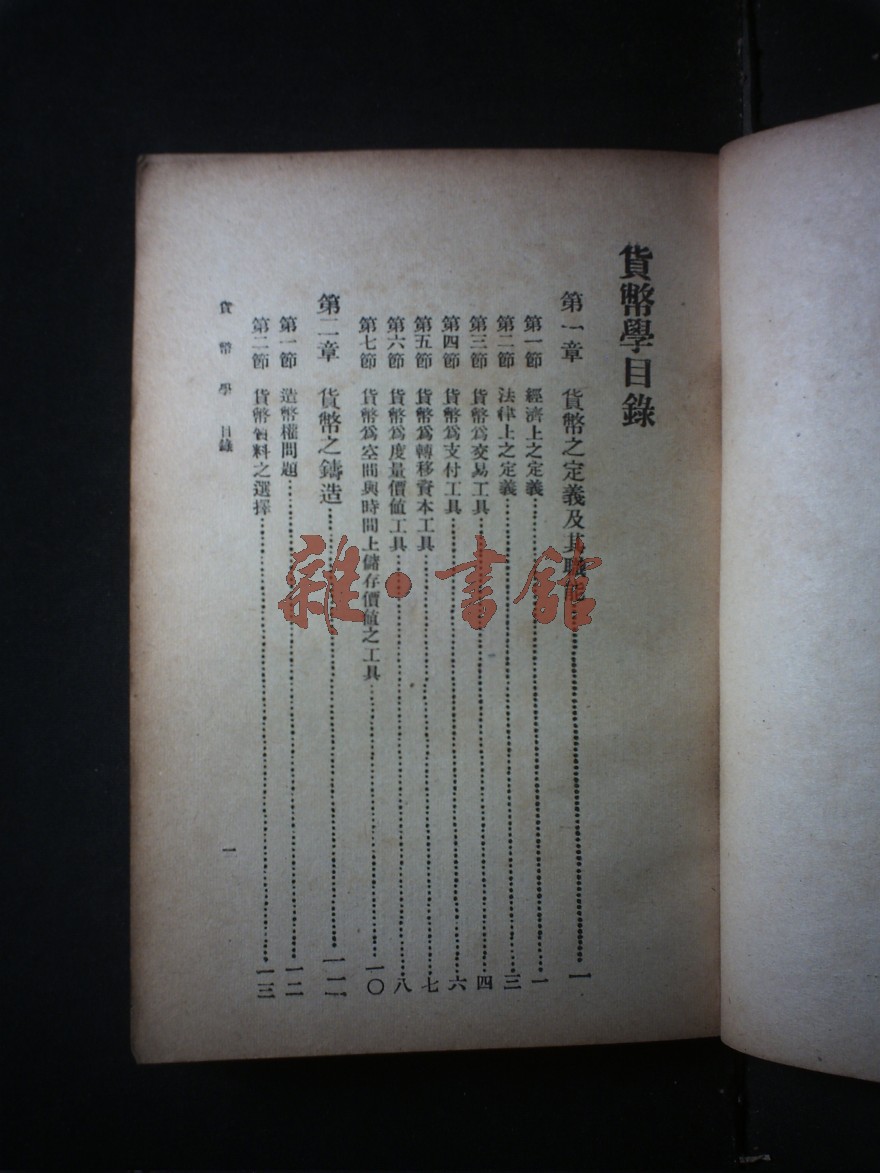 貨幣學目錄
第一章 貨幣之定義及其職能……一
第一節 經濟上之定義……一
第二節 法律上之定義……三
第三節 貨幣爲交易工具……四
第四節 貨幣爲支付工具……六
第五節 貨幣爲轉移資本工具……七
第六節 貨幣爲度量價値工具……八
第七節 貨幣爲空間與時間上儲存價値之工具……一〇
第二章 貨幣之鑄造……一二
第一節 造幣權問題……一二
第二節 貨幣資料之選擇……一三
貨幣學 目錄
一
雜·書館